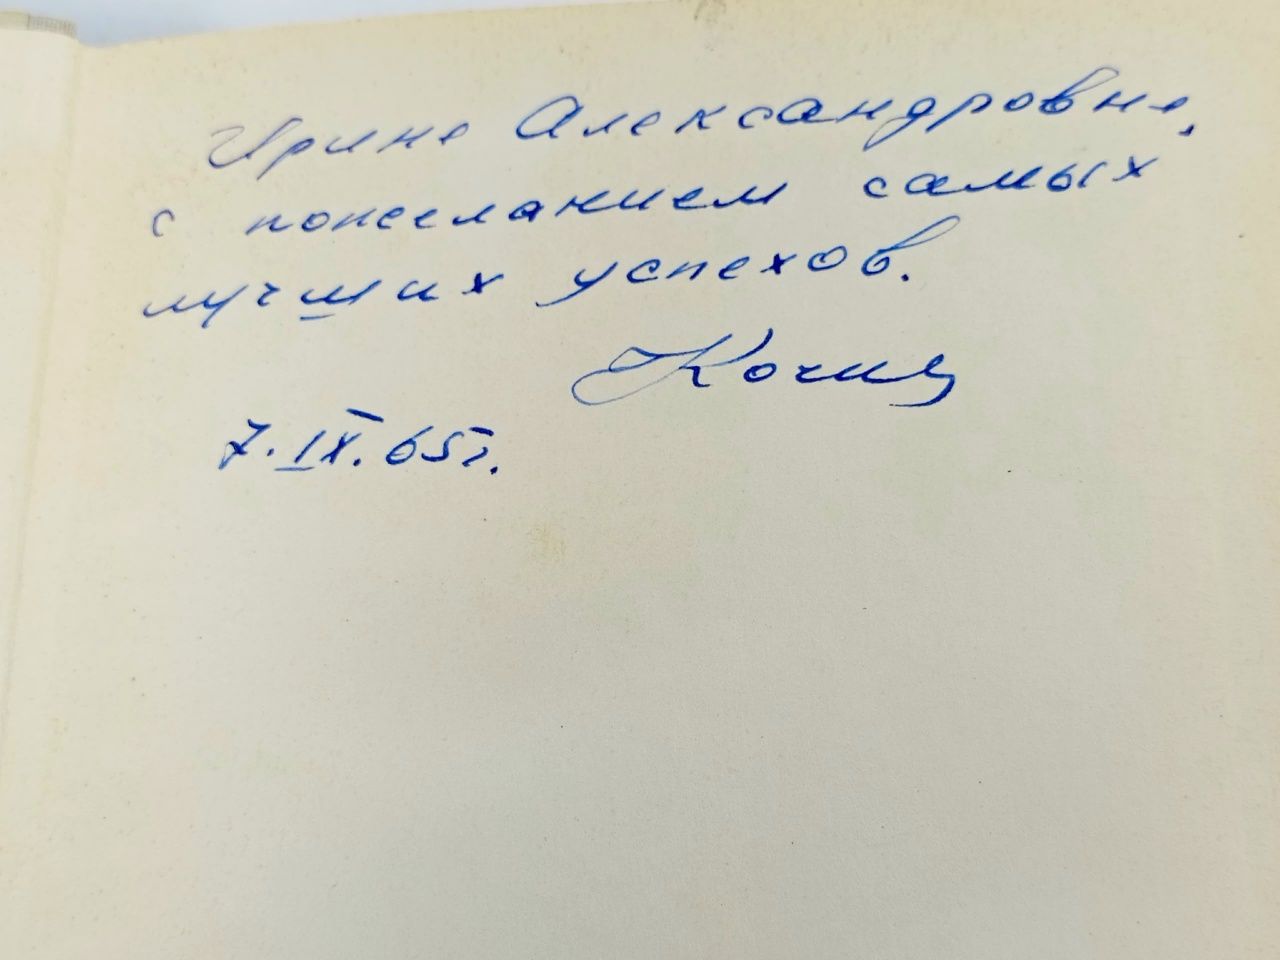 Ирине Александровне,
с пожеланием самых
лучших успехов.
7.IX.65г.